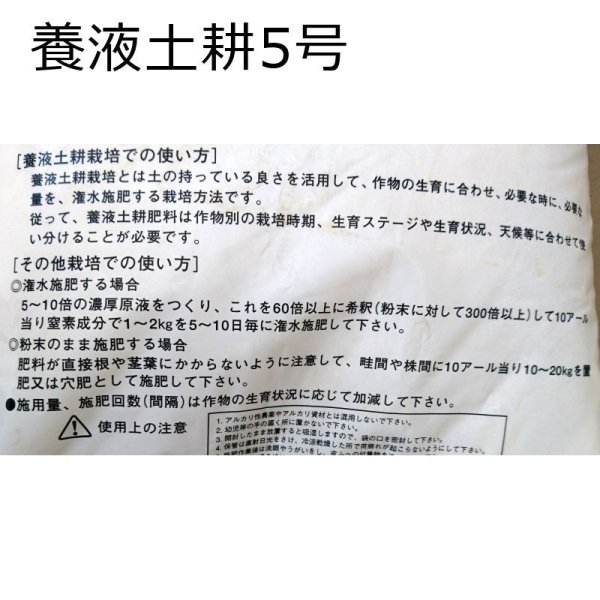 養液土耕5号
[養液土耕栽培での使い方]
養液土耕栽培とは土の持っている良さを活用して、作物の生育に合わせ、必要な時に、必要な
量を、潅水施肥する栽培方法です。
従って、養液土耕肥料は作物別の栽培時期、生育ステージや生育状況、天候等に合わせて使
い分けることが必要です。
[その他栽培での使い方]
◎潅水施肥する場合
5～10倍の濃厚原液をつくり、これを60倍以上に希釈(粉末に対して300倍以上)して10アール
当り窒素成分で1～2kgを5～10日毎に潅水施肥して下さい。
◎粉末のまま施肥する場合
肥料が直接根や茎葉にかからないように注意して、畦間や株間に10アール当り10～20kgを置
肥又は穴肥として施肥して下さい。
●施用量、施肥回数(間隔)は作物の生育状況に応じて加減して下さい。
使用上の注意
1. アルカリ性農薬やアルカリ資材とは混用しないで下さい。
2. 幼児等の手の届く所に置かないで下さい。
3. 開封したまま放置すると吸湿しますので、袋の口を密封して下さい。
4. 保管は直射日光をさけ、冷涼乾燥した所で荷崩れが起こらないようにして下さい。